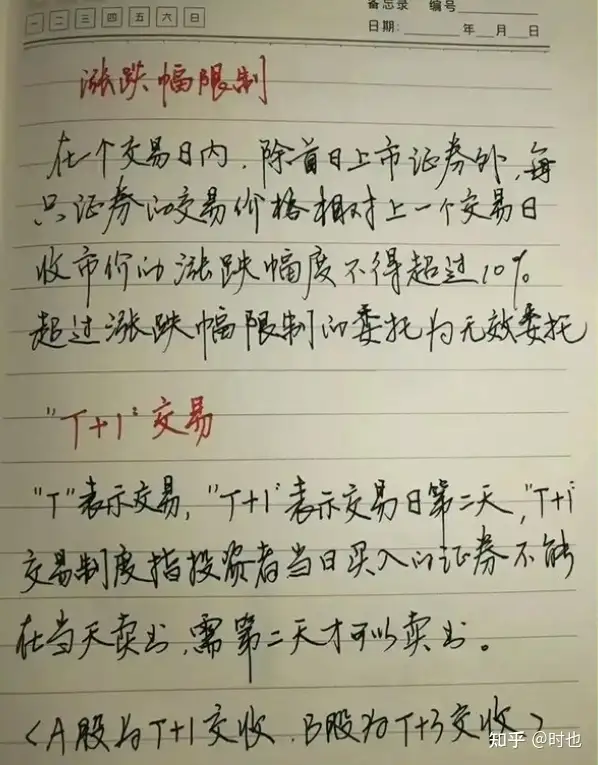 一 二 三 四 五 六 日
备忘录 编号
日期: 年 月 日
涨跌幅限制
在个交易日内,除首日上市证券外,每
只证券的交易价格相对上一个交易日
收市价的涨跌幅度不得超过10%
超过涨跌幅限制的委托为无效委托
"T+1"交易
"T"表示交易,"T+1"表示交易日第二天,"T+1"
交易制度指投资者当日买入的证券不能
在当天卖出,需第二天才可以卖出。
<A股为T+1交收,B股为T+3交收>
知乎 @时也